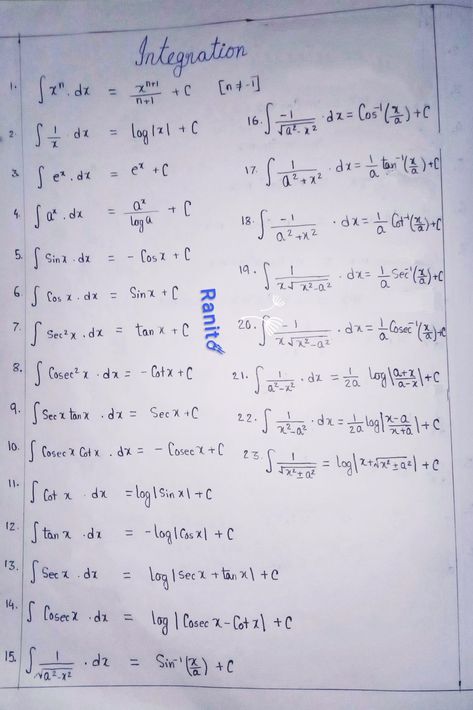 Integration
1. ∫ xⁿ . dx = xⁿ⁺¹/n+1 + C [n ≠ -1]
2. ∫ 1/x . dx = log|x| + C
3. ∫ eˣ . dx = eˣ + C
4. ∫ aˣ . dx = aˣ/log a + C
5. ∫ Sin x . dx = - Cos x + C
6. ∫ Cos x . dx = Sin x + C
7. ∫ Sec² x . dx = tan x + C
8. ∫ Cosec² x . dx = - Cot x + C
9. ∫ Sec x tan x . dx = Sec x + C
10. ∫ Cosec x Cot x . dx = - Cosec x + C
11. ∫ Cot x . dx = log|Sin x| + C
12. ∫ tan x . dx = -log|Cos x| + C
13. ∫ Sec x . dx = log|Sec x + tan x| + C
14. ∫ Cosec x . dx = log|Cosec x - Cot x| + C
15. ∫ 1/√a²-x² . dx = Sin⁻¹(x/a) + C
16. ∫ -1/√a²-x² . dx = Cos⁻¹(x/a) + C
17. ∫ 1/a²+x² . dx = 1/a tan⁻¹(x/a) + C
18. ∫ -1/a²+x² . dx = 1/a Cot⁻¹(x/a) + C
19. ∫ 1/x√x²-a² . dx = 1/a Sec⁻¹(x/a) + C
20. ∫ -1/x√x²-a² . dx = 1/a Cosec⁻¹(x/a) + C
21. ∫ 1/a²-x² . dx = 1/2a log|a+x/a-x| + C
22. ∫ 1/x²-a² . dx = 1/2a log|x-a/x+a| + C
23. ∫ 1/√x²±a² = log|x+√x²±a²| + C
Ranit